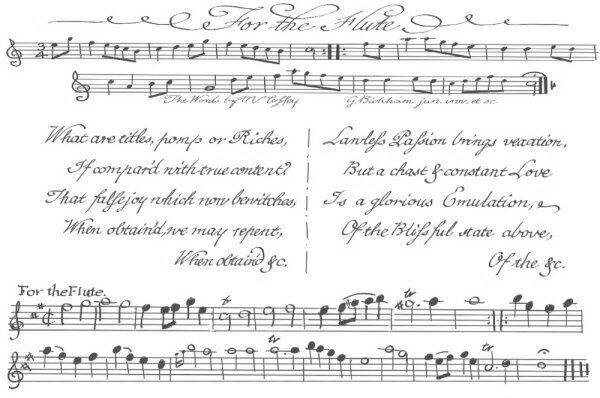 For the Flute
The Words by Mr. Coffey
G. Bickham jun. inv. et sc.
What are titles, pomp or Riches,
If compar'd with true content?
That false joy which now bewitches,
When obtain'd, we may repent,
When obtain'd &c.
Lawless Passion brings vexation,
But a chast & constant Love
Is a glorious Emulation,
Of the Blissful state above,
Of the &c.
For the Flute.